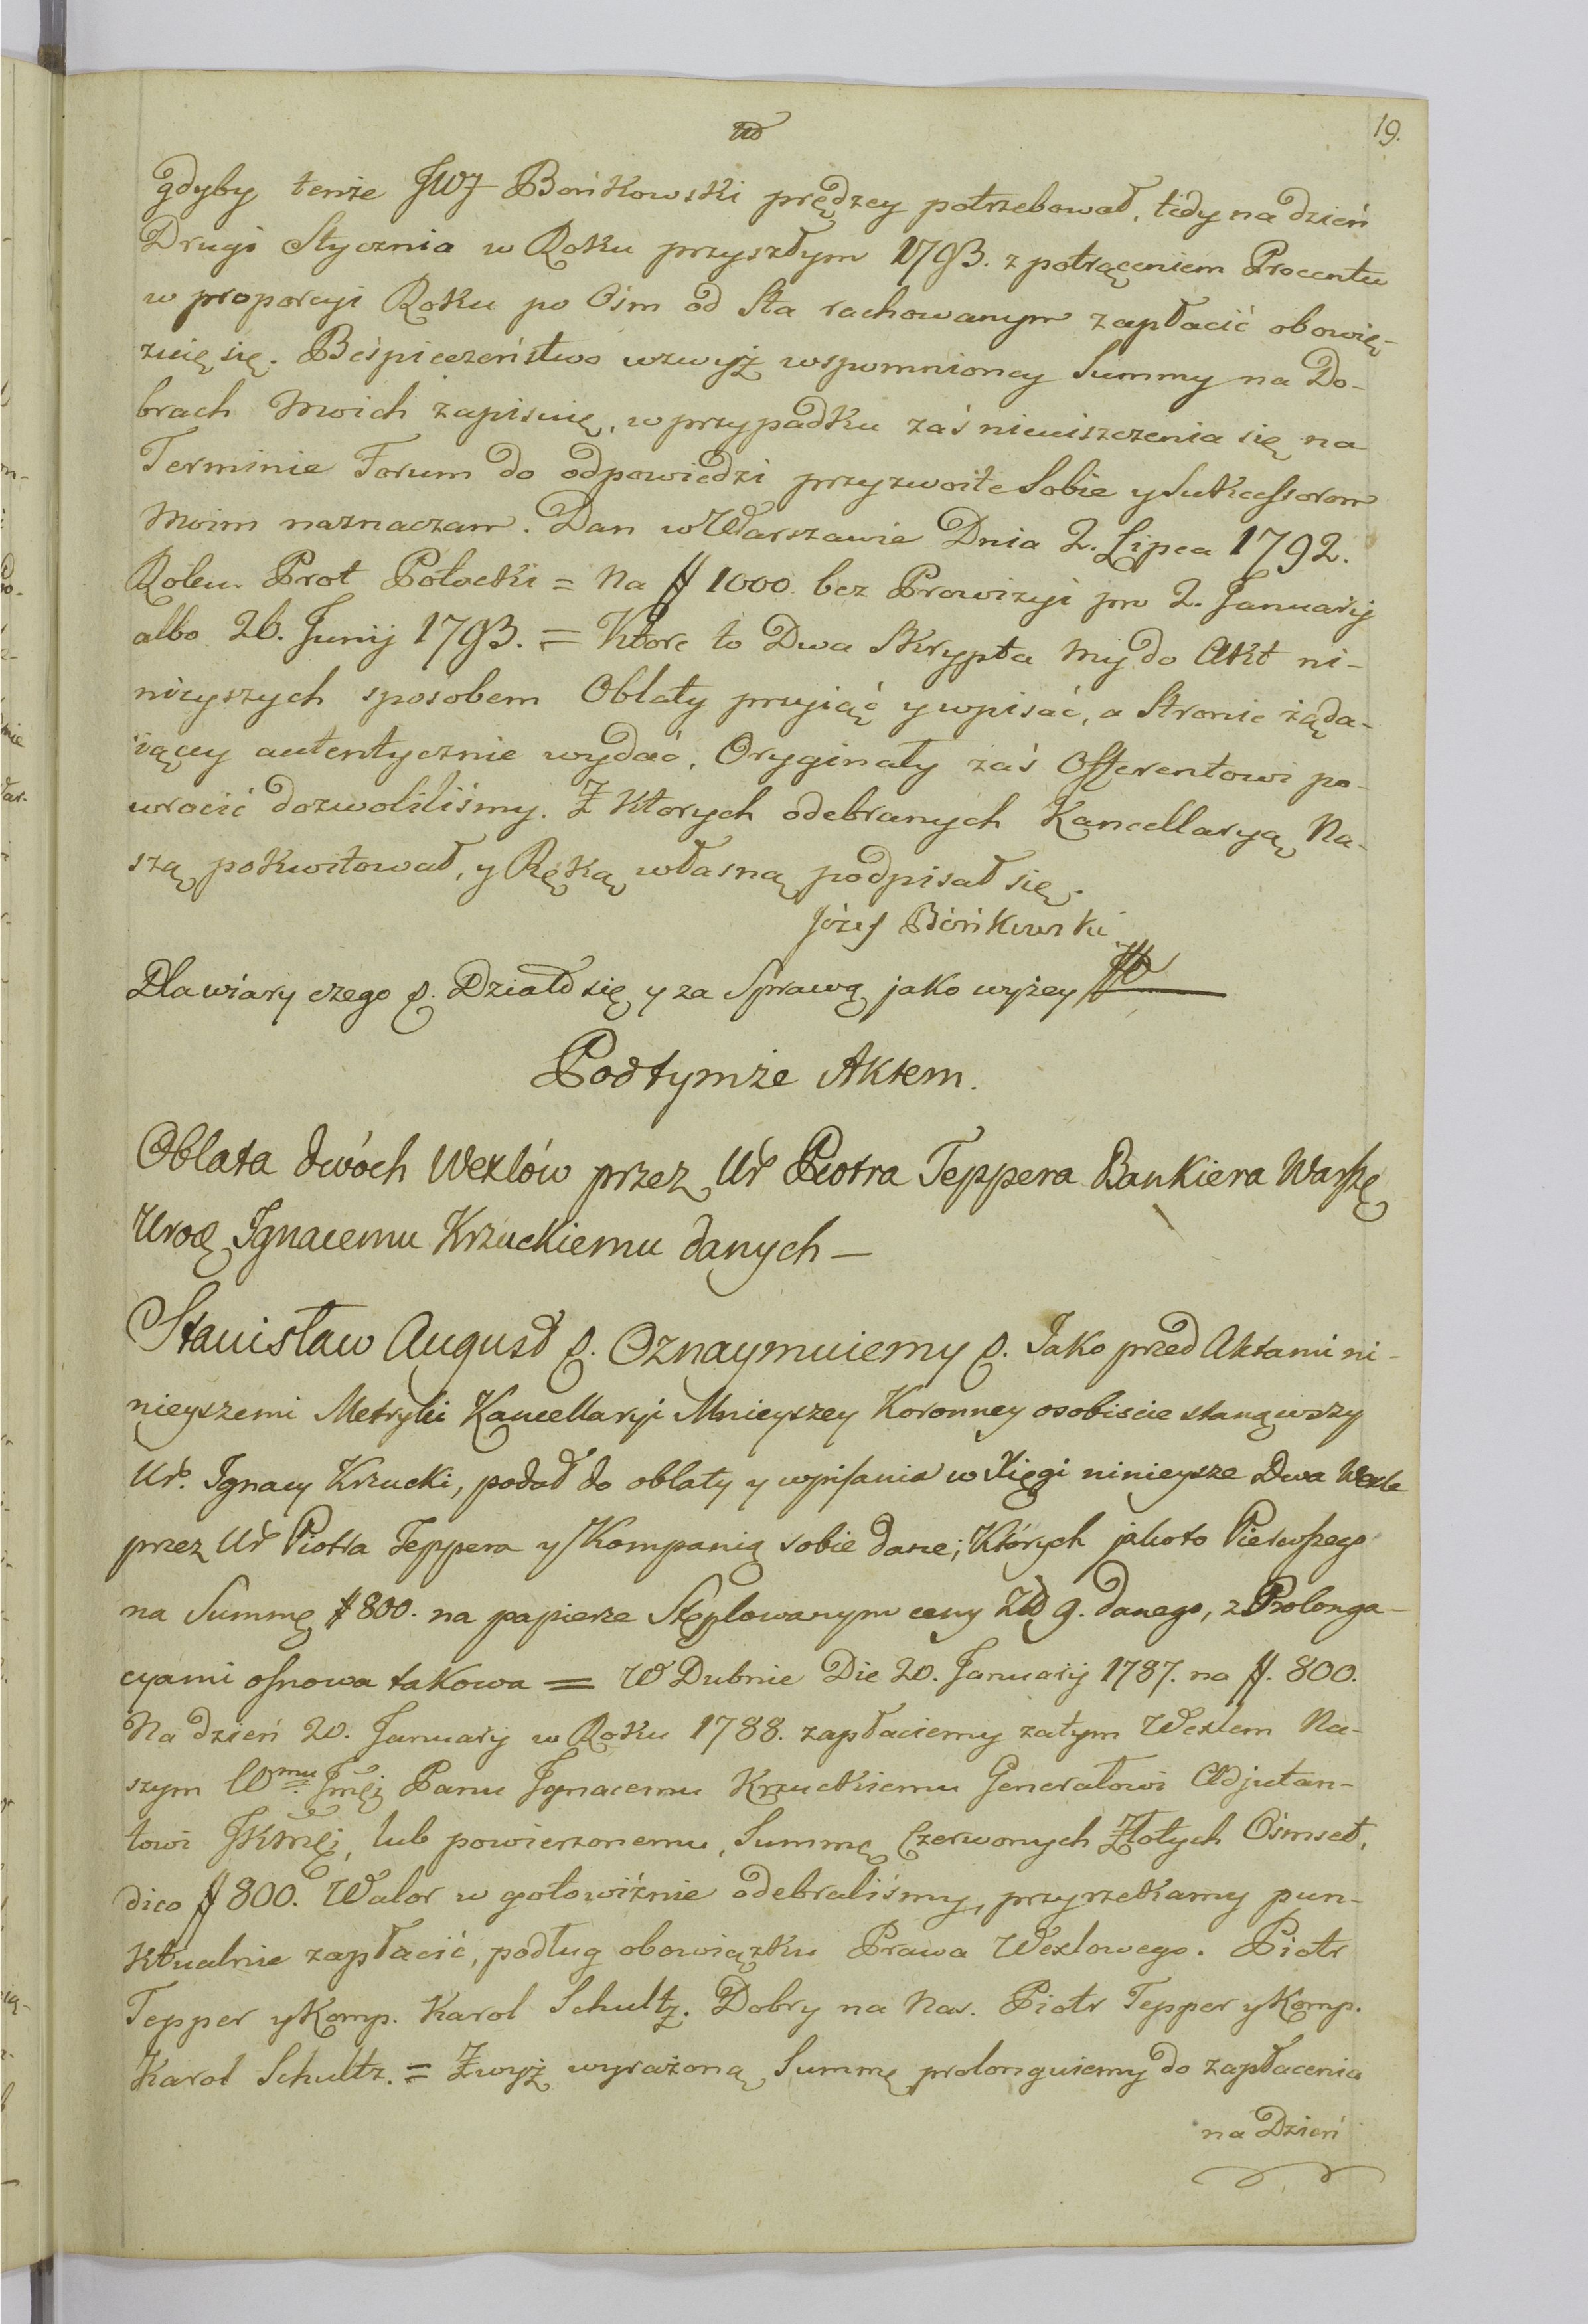 19.
gdyby tenże JWJ Bońkowski prędzey potrzebował, tedy na dzień
Drugi Stycznia w Roku przyszłym 1793. z potrąceniem Procentu
w proporcyi Roku po Ośm od Sta rachowanym zapłacić obowię-
zuię się. Beśpieczeństwo wzwyż wspomnioney Summy na Do-
brach Moich zapisuię, w przypadku zaś nieuiszczenia się na
Terminie Forum do odpowiedzi przyzwoite Sobie y Sukcessorom
Moim naznaczam. Dan w Warszawie Dnia 2. Lipca 1792.
Roku. Prot Potocki = Na # 1000. bez Prowizyi pro 2. Januarij
albo 26. Junij 1793. = Ktore to Dwa Skrypta My do Akt ni-
nieyszych sposobem Oblaty przyiąć y wpisać, a Stronie żąda-
iącey autentycznie wydać, Oryginały zaś Offerentowi po-
wrocić dozwoliliśmy. Z Ktorych odebranych Kancellaryą Na-
szą pokwitował, y Ręką własną podpisał się.
Józef Bońkowski
Dla wiary czego &. Działo się y za Sprawą jako wyżey
Pod tymże Aktem.
Oblata dwóch Wexlów przez Ur Piotra Teppera Bankiera Warszę
Uroę Ignacemu Krzuckiemu danych —
Stanisław August &. Oznaymuiemy &. Jako przed Aktami ni-
nieyszemi Metryki Kancellaryi Mnieyszey Koronney osobiscie stanąwszy
Ur. Ignacy Krzucki, podał do oblaty y wpisania w Xięgi ninieysze Dwa Wexle
przez Ur Piotra Teppera y Kompanią sobie dane; Których jakoto Pierwszego
na Summę # 800. na papierze Stęplowanym ceny Zło 9. danego, z Prolonga-
cyami osnowa takowa = W Dubnie Die 20. Januarij 1787. na #. 800.
Na dzień 20. Januarij w Roku 1788. zapłaciemy zatym Wexlem Na-
szym Wmu. Jmci Panu Ignacemu Krzuckiemu Generałowi Adjutan-
towi JKMci, lub powierzonemu, Summę Czerwonych Złotych Ośmset,
dico # 800. Walor w gotowiźnie odebraliśmy, przyrzekamy pun-
ktualnie zapłacić, podług obowiązku Prawa Wexlowego. Piotr
Tepper y Komp. Karol Schultz. Dobry na Nas. Piotr Tepper y Komp.
Karol Schultz. = Zwyż wyrażoną Summę prolonguiemy do zapłacenia
na Dzień